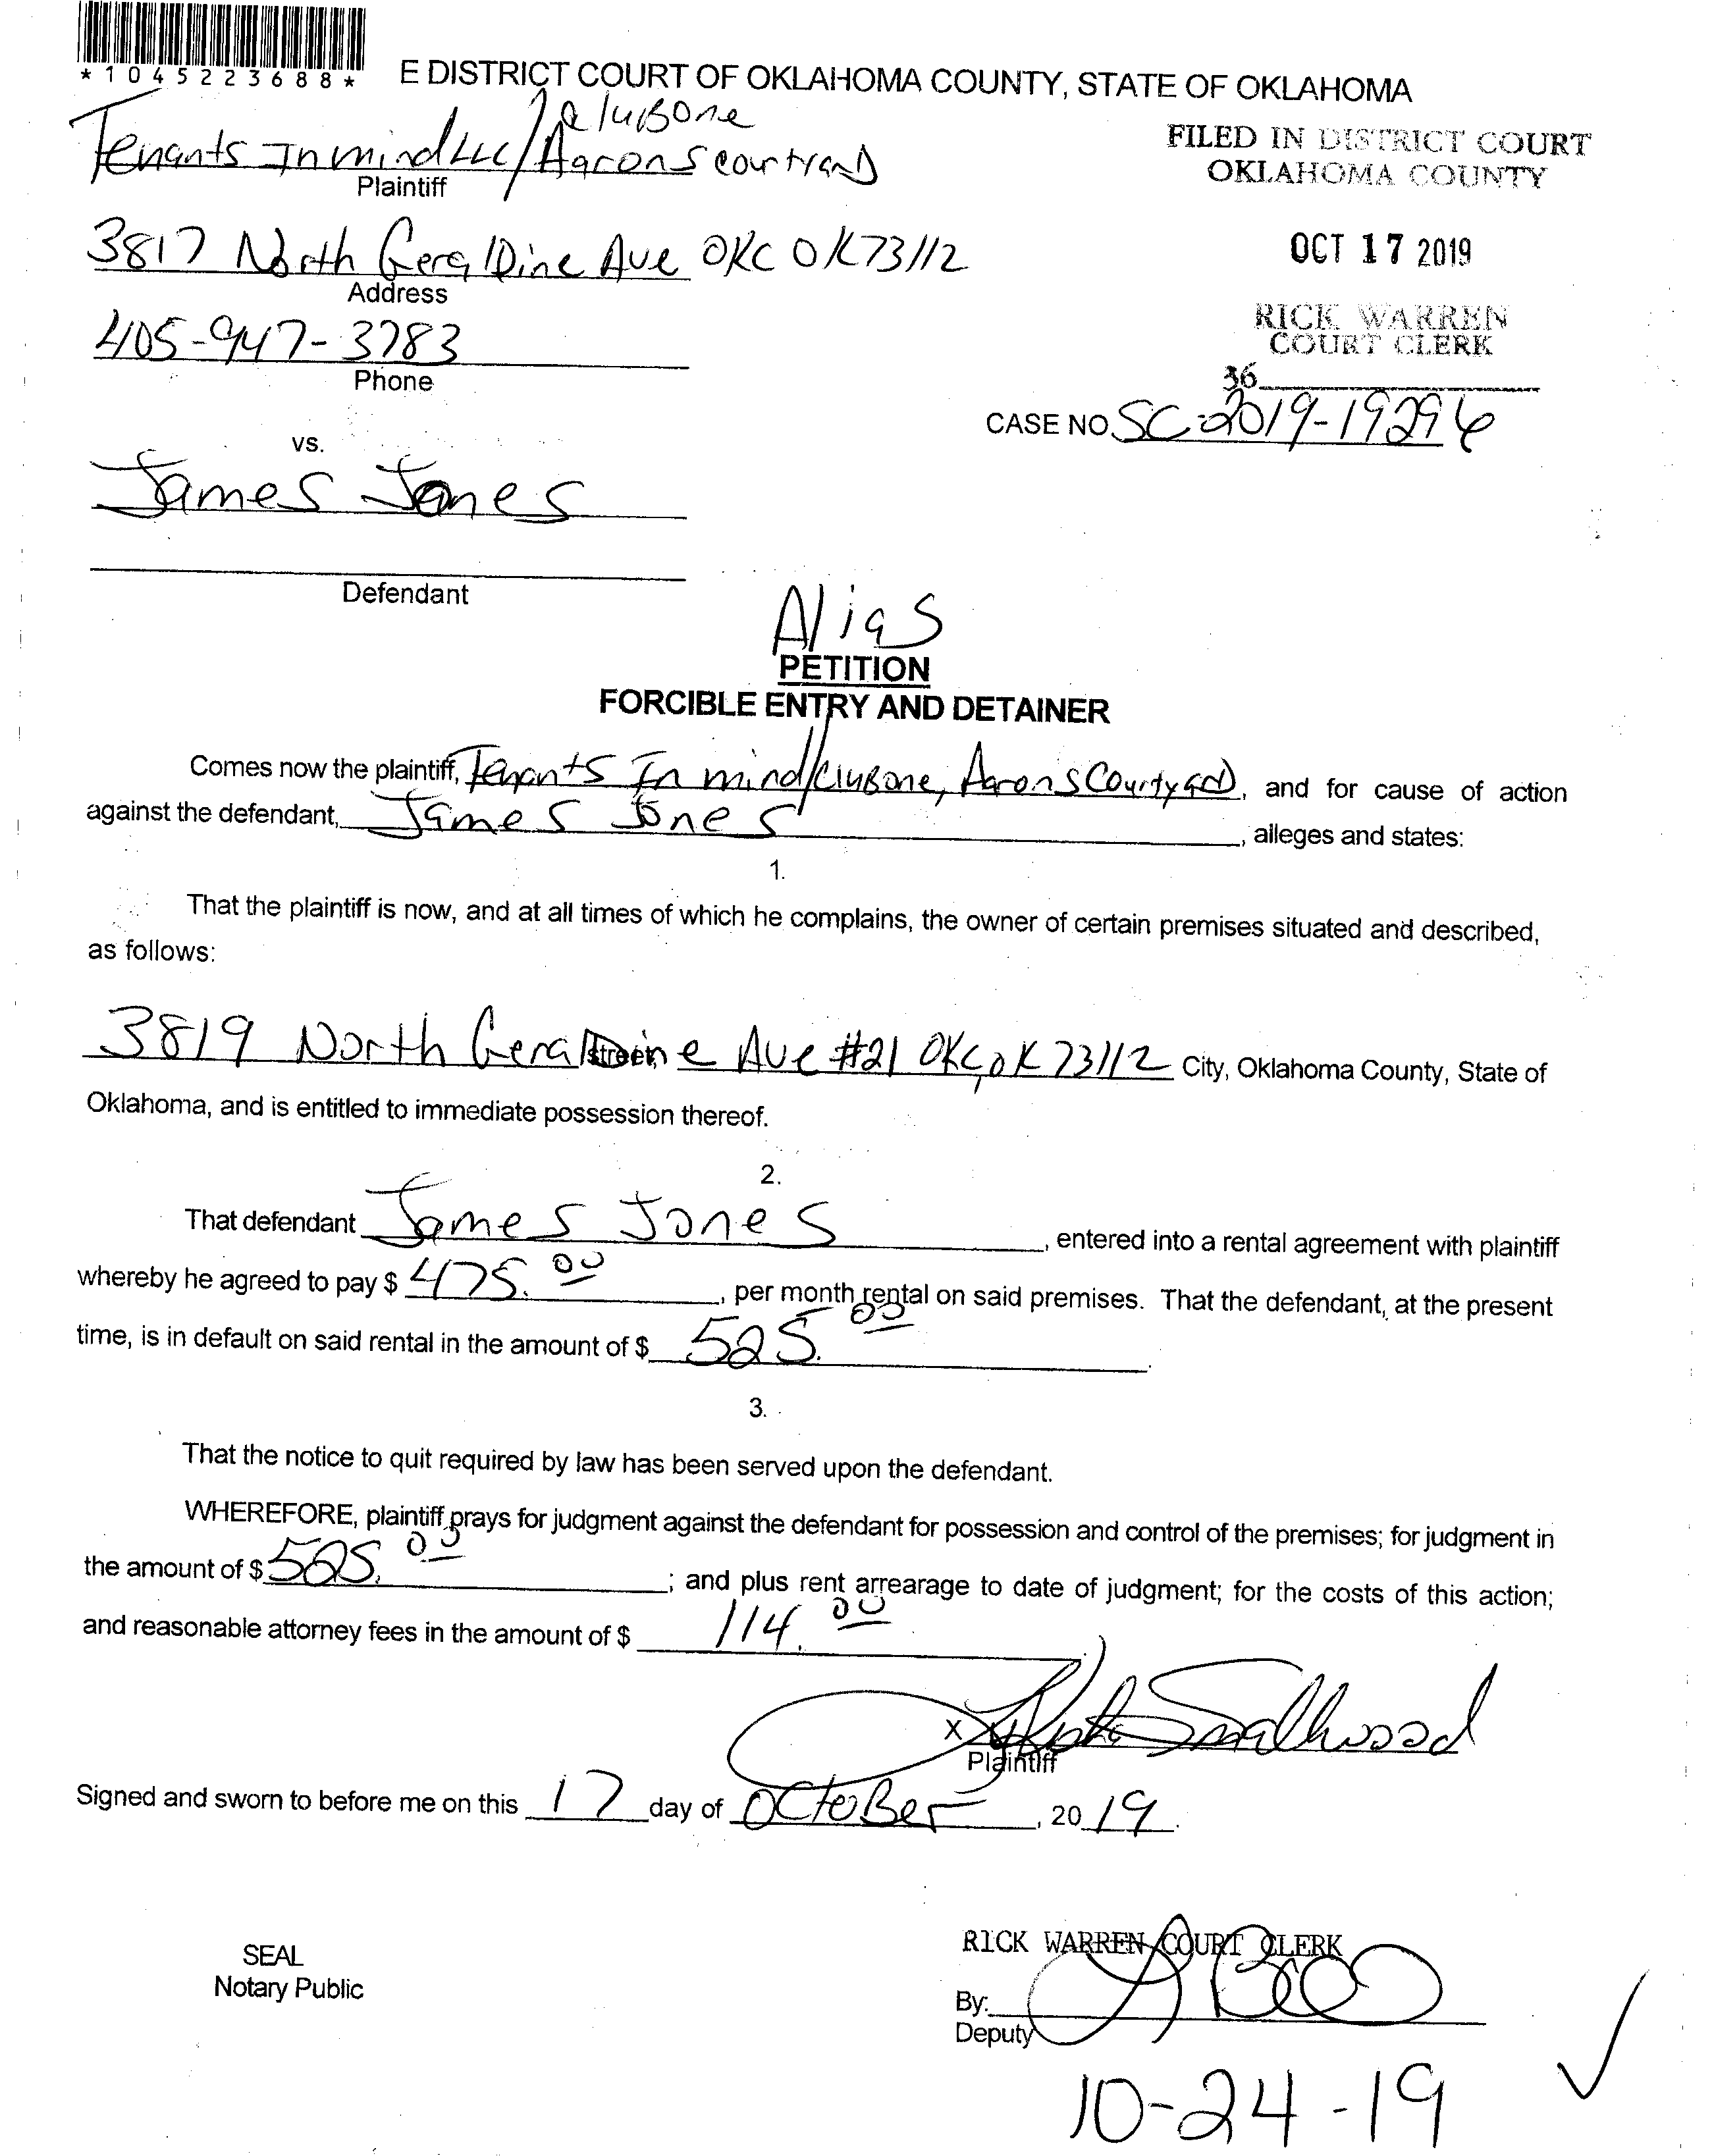 *1045223688*
E DISTRICT COURT OF OKLAHOMA COUNTY, STATE OF OKLAHOMA
cluBone
Tenants In mind LLC/Aarons courtyard
Plaintiff
FILED IN DISTRICT COURT
OKLAHOMA COUNTY
3817 North GeralDine Ave OKC OK 73112
Address
OCT 17 2019
405-947-3783
Phone
RICK WARREN
COURT CLERK
36
CASE NO. SC-2019-19296
vs.
James Jones
Defendant
Alias
PETITION
FORCIBLE ENTRY AND DETAINER
Comes now the plaintiff, Tenants In mind/cluBone, Aarons Courtyard, and for cause of action
against the defendant, James Jones, alleges and states:
1.
That the plaintiff is now, and at all times of which he complains, the owner of certain premises situated and described,
as follows:
3819 North GeralDine Ave #21 OKC, OK 73112 City, Oklahoma County, State of
street
Oklahoma, and is entitled to immediate possession thereof.
2.
That defendant James Jones, entered into a rental agreement with plaintiff
whereby he agreed to pay $ 475.00, per month rental on said premises. That the defendant, at the present
time, is in default on said rental in the amount of $ 525.00.
3.
That the notice to quit required by law has been served upon the defendant.
WHEREFORE, plaintiff prays for judgment against the defendant for possession and control of the premises; for judgment in
the amount of $ 525.00; and plus rent arrearage to date of judgment; for the costs of this action;
and reasonable attorney fees in the amount of $ 114.00
X Smallwood
Plaintiff
Signed and sworn to before me on this 17 day of OctoBer, 2019.
SEAL
Notary Public
RICK WARREN COURT CLERK
By:
Deputy
10-24-19